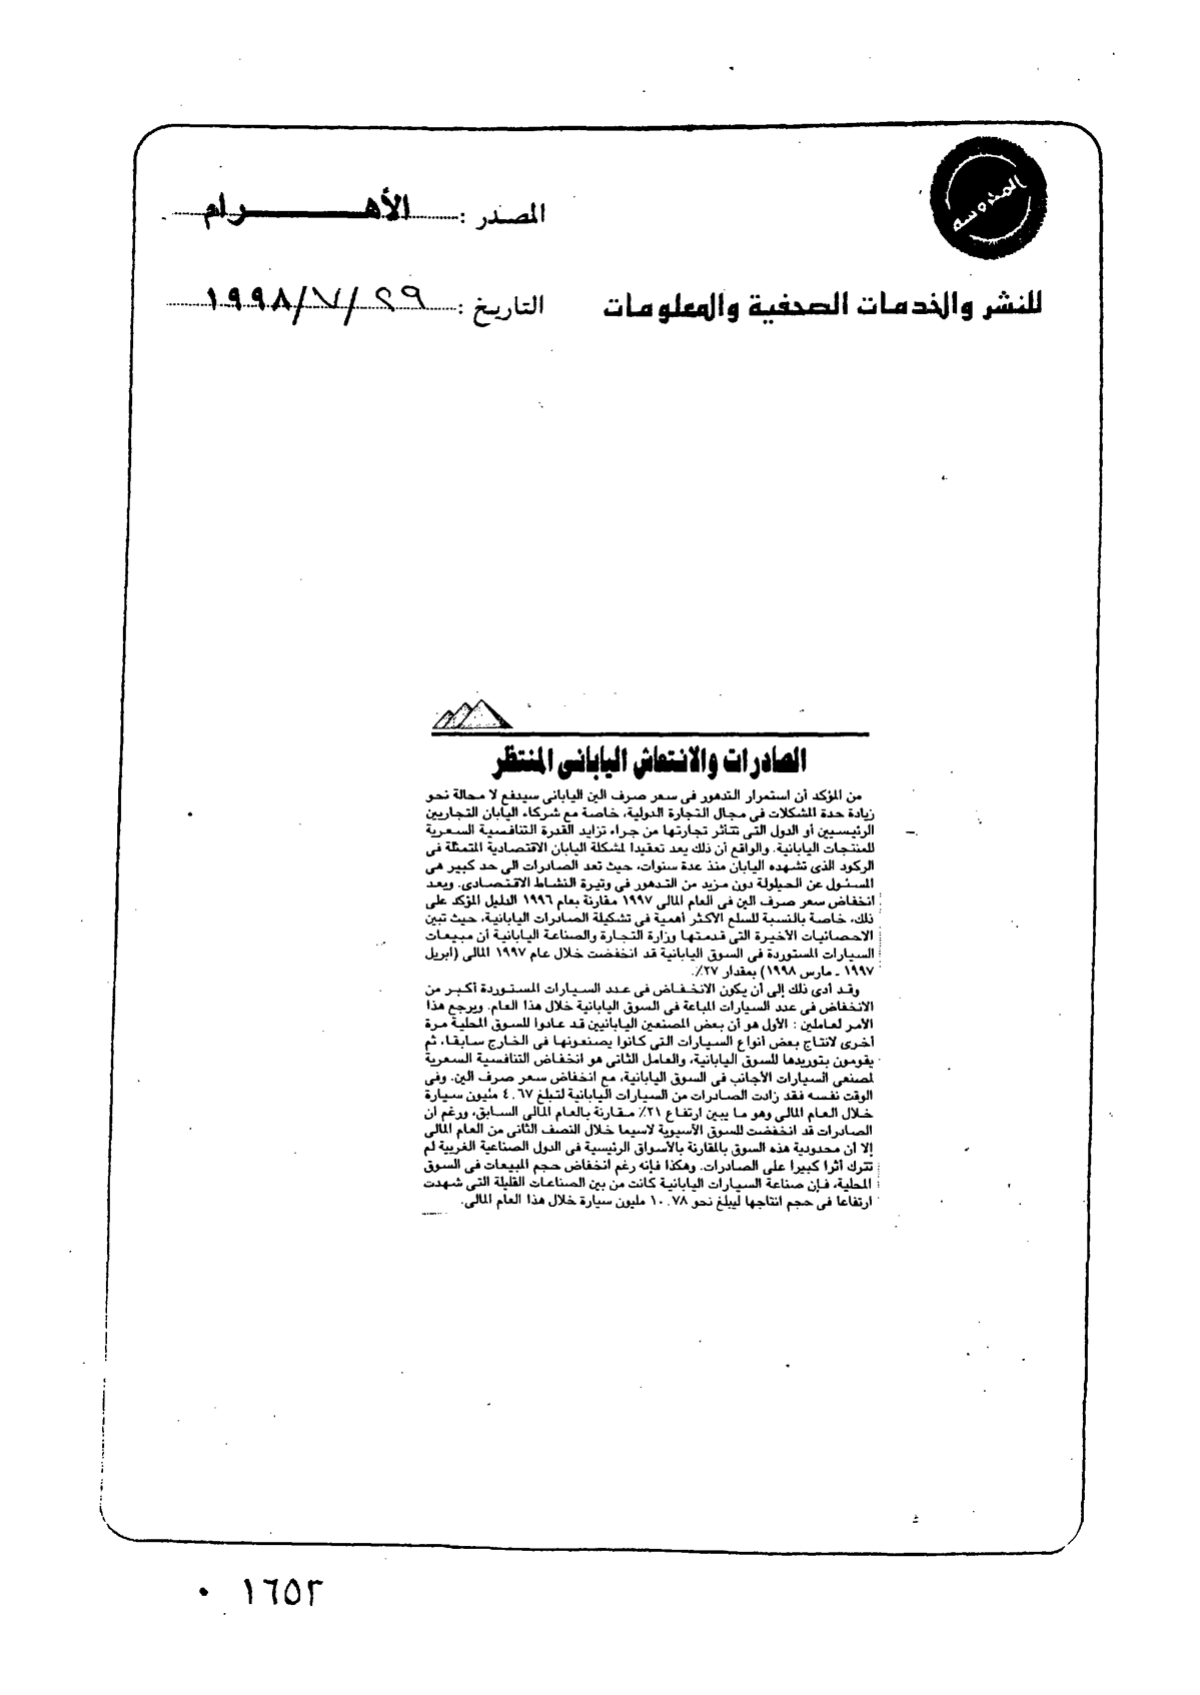 المحروسة
المصدر : الأهرام
للنشر والخدمات الصحفية والمعلومات
التاريخ : ٢٩/٧/١٩٩٨
الصادرات والانتعاش اليابانى المنتظر
من المؤكد أن استمرار التدهور فى سعر صرف الين اليابانى سيدفع لا محالة نحو
زيادة حدة المشكلات فى مجال التجارة الدولية، خاصة مع شركاء اليابان التجاريين
الرئيسيين أو الدول التى تتأثر تجارتها من جراء تزايد القدرة التنافسية السعرية
للمنتجات اليابانية. والواقع أن ذلك يعد تعقيدا لمشكلة اليابان الاقتصادية المتمثلة فى
الركود الذى تشهده اليابان منذ عدة سنوات، حيث تعد الصادرات الى حد كبير هى
المسئول عن الحيلولة دون مزيد من التدهور فى وتيرة النشاط الاقتصادى. ويعد
انخفاض سعر صرف الين فى العام المالى ١٩٩٧ مقارنة بعام ١٩٩٦ الدليل المؤكد على
ذلك، خاصة بالنسبة للسلع الأكثر أهمية فى تشكيلة الصادرات اليابانية، حيث تبين
الاحصائيات الأخيرة التى قدمتها وزارة التجارة والصناعة اليابانية أن مبيعات
السيارات المستوردة فى السوق اليابانية قد انخفضت خلال عام ١٩٩٧ المالى (ابريل
١٩٩٧ ـ مارس ١٩٩٨) بمقدار ٢٧٪.
وقد أدى ذلك إلى أن يكون الانخفاض فى عدد السيارات المستوردة أكبر من
الانخفاض فى عدد السيارات المباعة فى السوق اليابانية خلال هذا العام. ويرجع هذا
الأمر لعاملين : الأول هو أن بعض المصنعين اليابانيين قد عادوا للسوق المحلية مرة
أخرى لانتاج بعض أنواع السيارات التى كانوا يصنعونها فى الخارج سابقا، ثم
يقومون بتوريدها للسوق اليابانية، والعامل الثانى هو انخفاض التنافسية السعرية
لمصنعى السيارات الأجانب فى السوق اليابانية، مع انخفاض سعر صرف الين. وفى
الوقت نفسه فقد زادت الصادرات من السيارات اليابانية لتبلغ ٤.٦٧ مليون سيارة
خلال العام المالى وهو ما يبين ارتفاع ٢١٪ مقارنة بالعام المالى السابق، ورغم أن
الصادرات قد انخفضت للسوق الآسيوية لاسيما خلال النصف الثانى من العام المالى
إلا أن محدودية هذه السوق بالمقارنة بالأسواق الرئيسية فى الدول الصناعية الغربية لم
تترك أثرا كبيرا على الصادرات. وهكذا فإنه رغم انخفاض حجم المبيعات فى السوق
المحلية، فإن صناعة السيارات اليابانية كانت من بين الصناعات القليلة التى شهدت
ارتفاعا فى حجم انتاجها ليبلغ نحو ١٠.٧٨ مليون سيارة خلال هذا العام المالى.
١٦٥٢